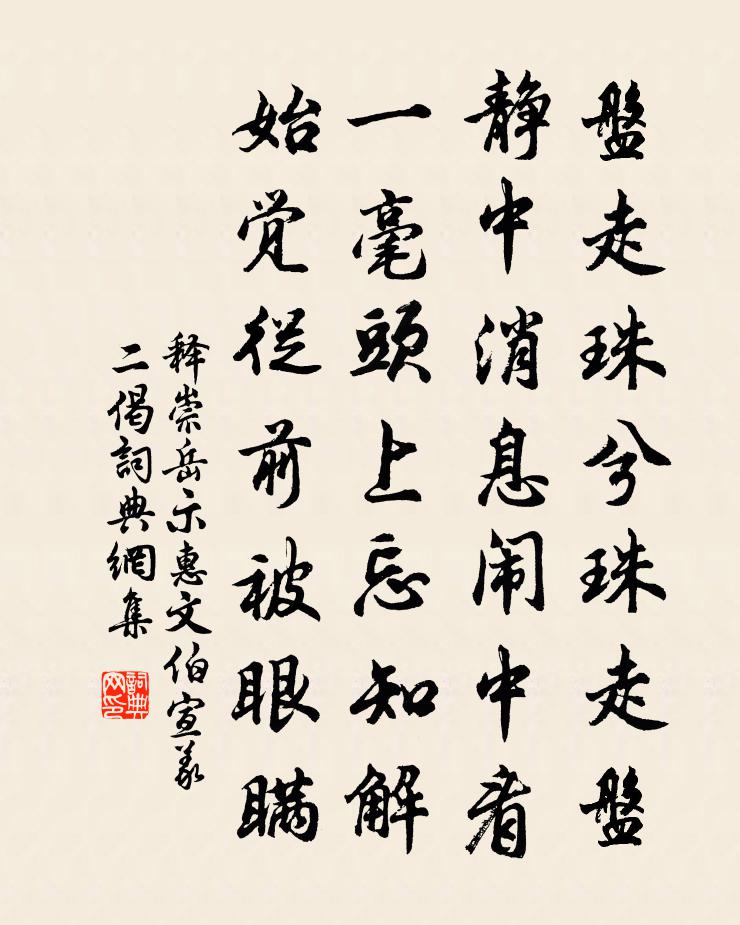 盤走珠兮珠走盤
静中消息闹中看
一毫頭上忘知解
始觉從前被眼瞞
释崇岳示惠文伯宣义
二偈詞典網集
詞典网印